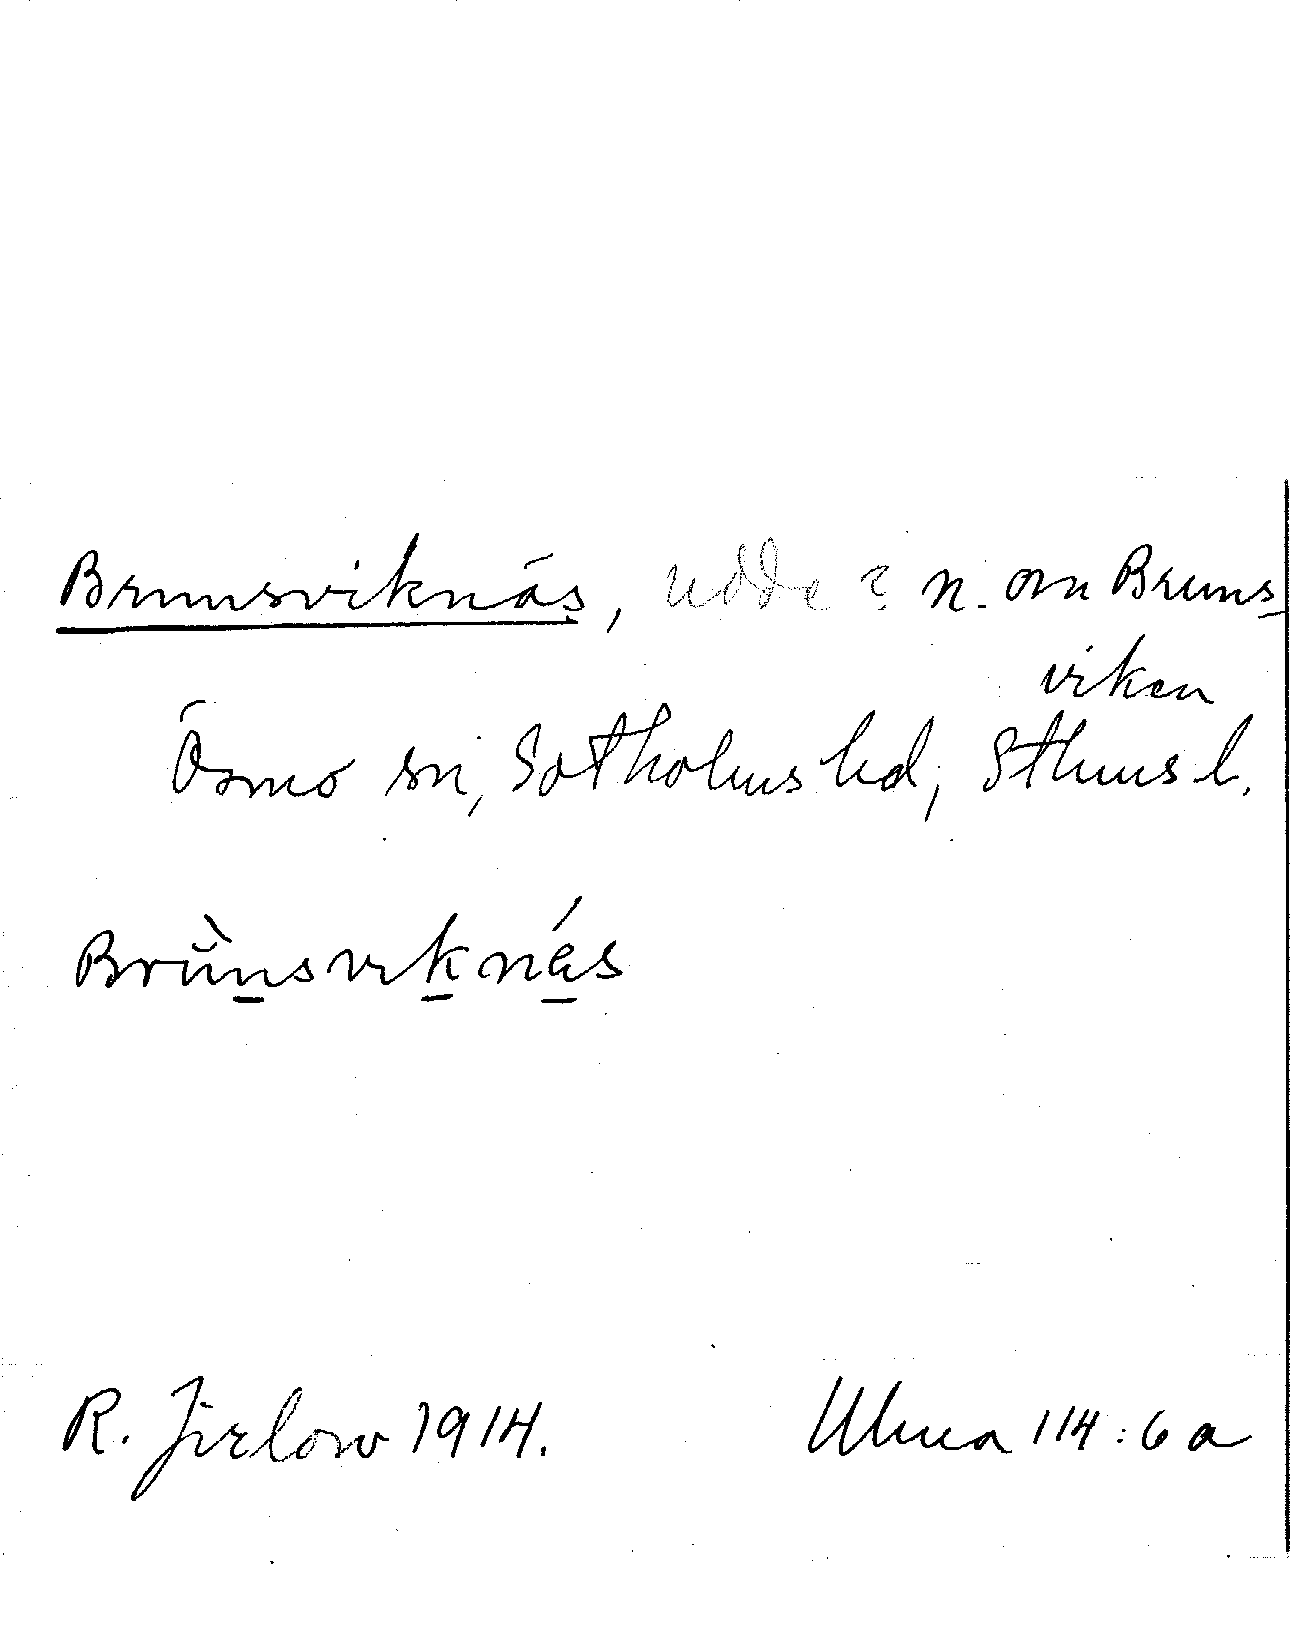 Brunsviknäs, udde? n. om Bruns-
viken
Ösmo sn, Sotholms hd, Sthms l.
Brùnsviknás
R. Jirlow 1914. Ulma 114:6a